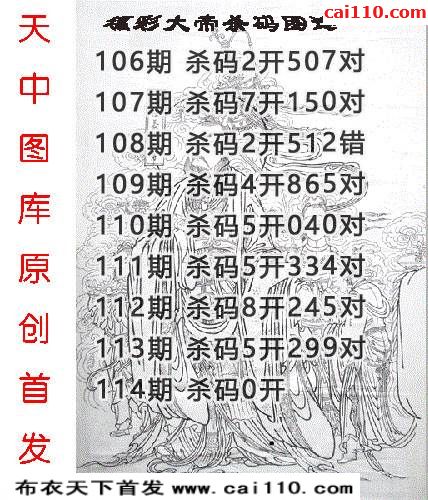 cai110.com
彩大帝杀码图
106期 杀码2开507对
107期 杀码7开150对
108期 杀码2开512错
109期 杀码4开865对
110期 杀码5开040对
111期 杀码5开334对
112期 杀码8开245对
113期 杀码5开299对
114期 杀码0开
天中图库原创首发
布衣天下首发 www.cai110.com